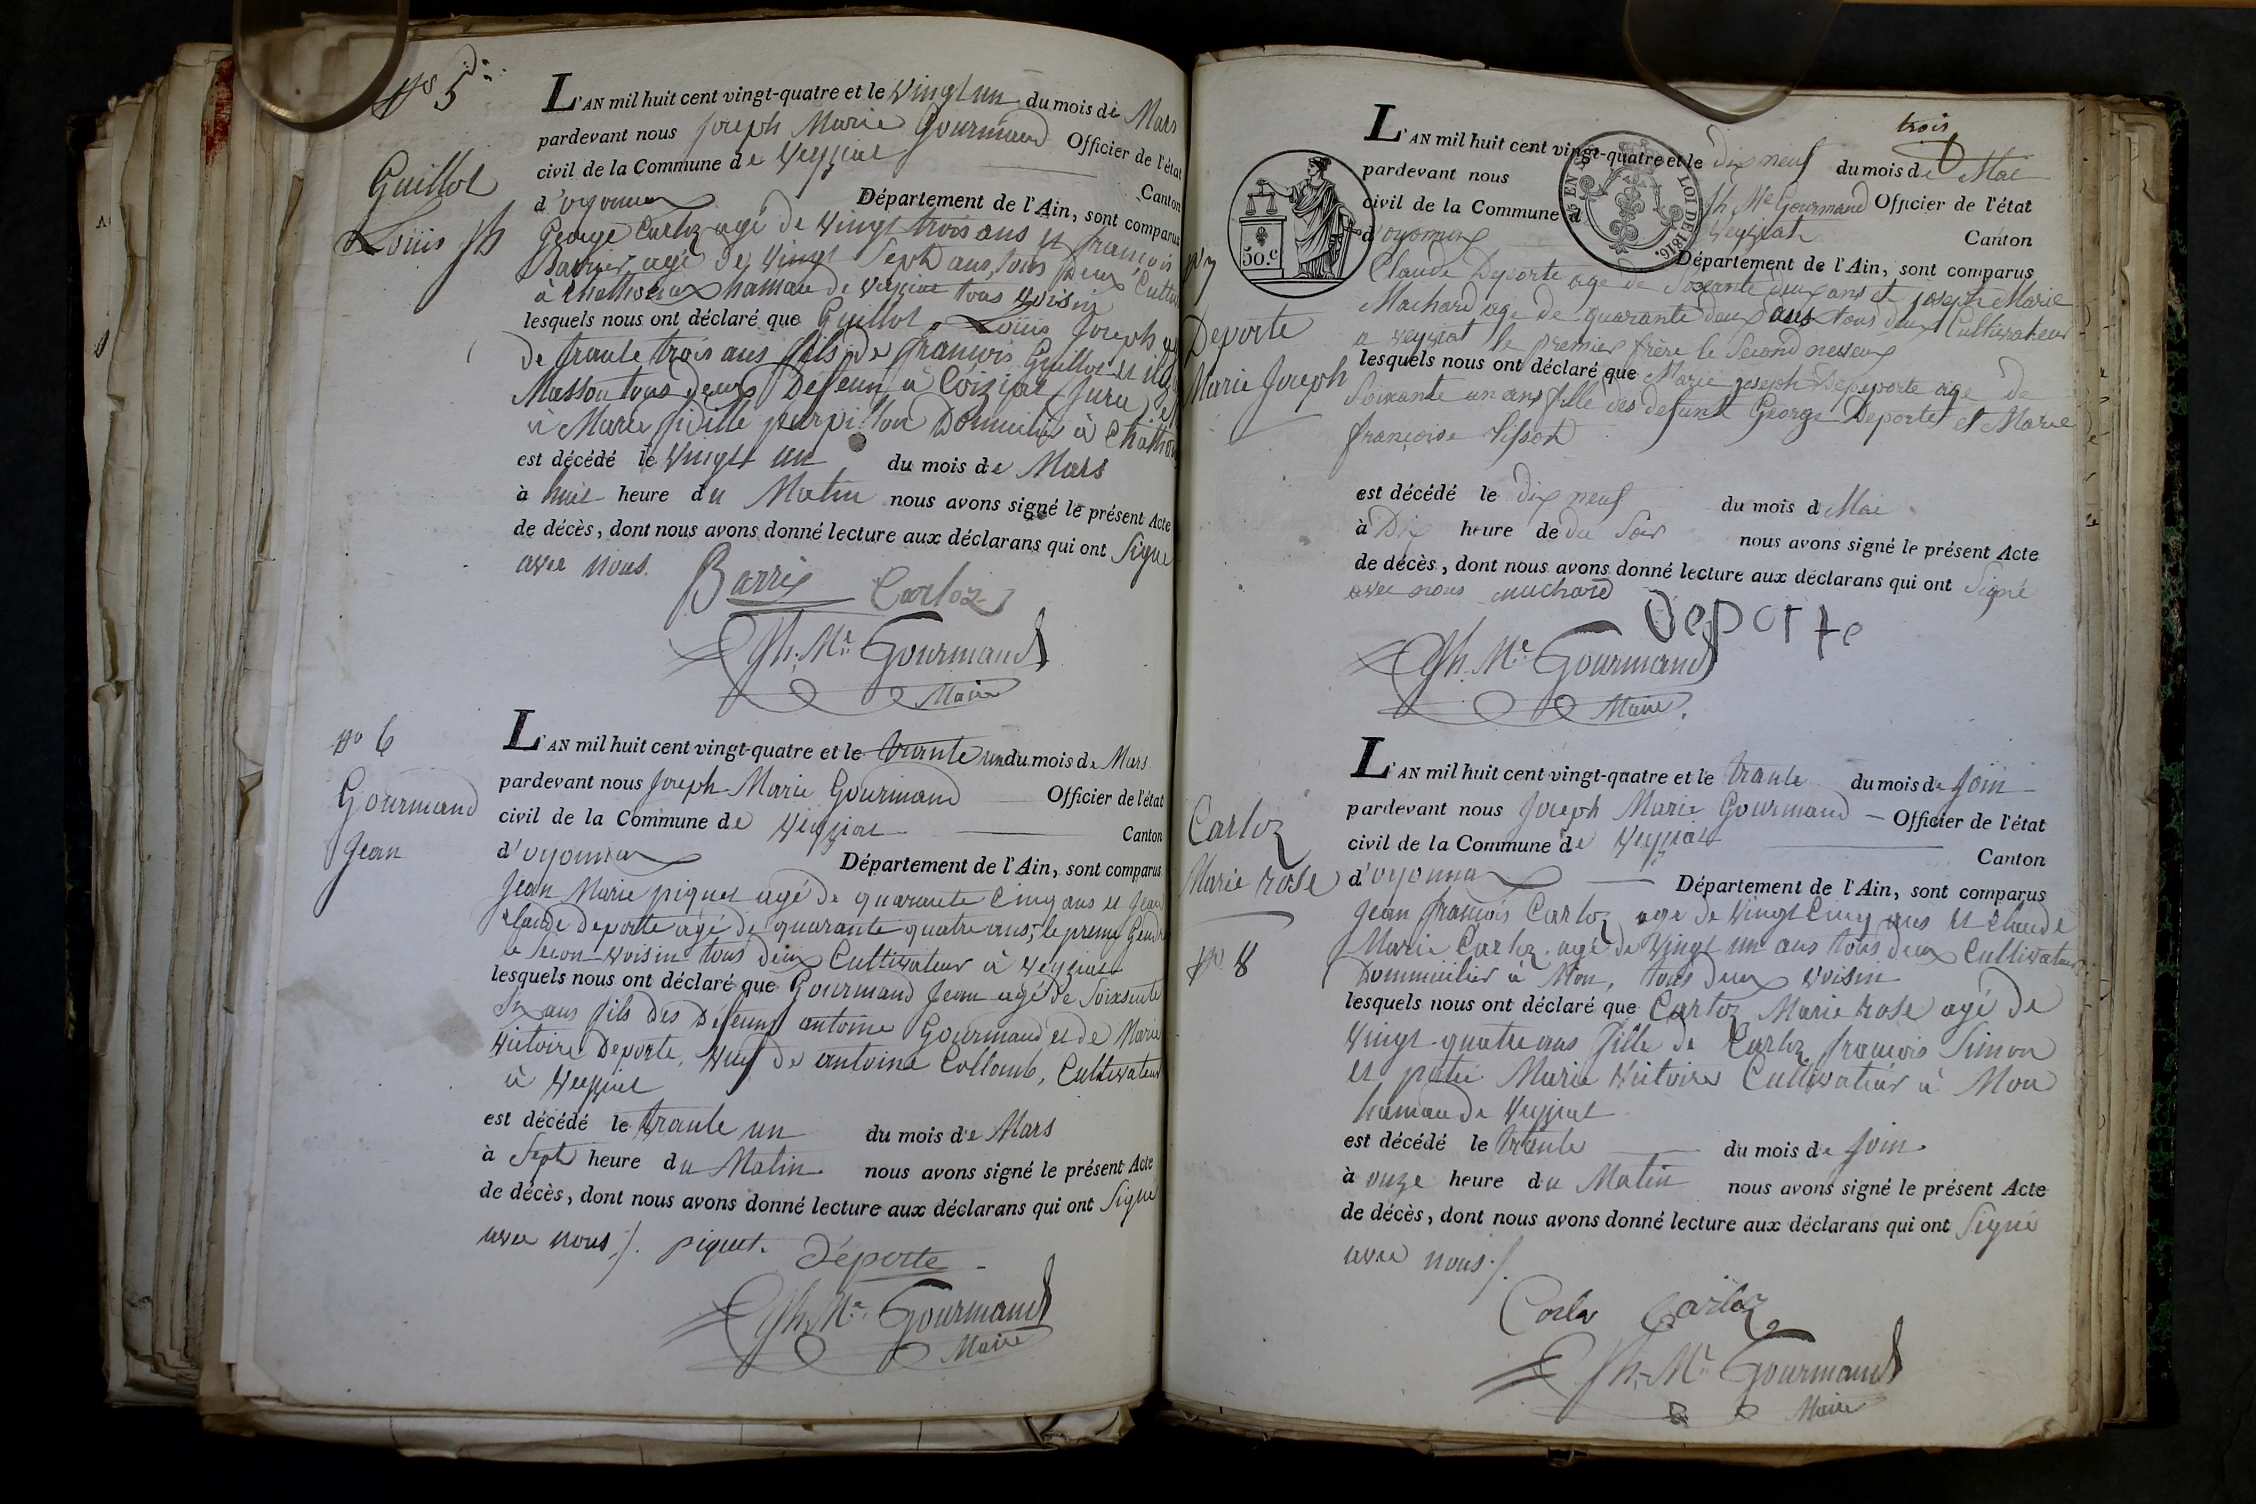 No 5
Guillot
Louis Jh
L'AN mil huit cent vingt-quatre et le vingt un du mois de Mars
pardevant nous Joseph Marie Gourmand Officier de l'état
civil de la Commune de Veyziat Canton
d'oyonnax Département de l'Ain, sont comparus
George Carloz agé de vingt trois ans et françois
agé de vingt Sept ans, tous deux
hamau de veyziat tous voisin
lesquels nous ont déclaré que Guillot Louis Joseph
de trante trois ans fils de françois Guillot et
Masson tous deux Defeun à Coiziat Jura
à Marie Domicilié à
est décédé le vingt un du mois de Mars
à huit heure du Matin nous avons signé le présent Acte
de décès, dont nous avons donné lecture aux déclarans qui ont Signe
avec nous.
Barrix Carloz
Jh. Me Gourmand
Maire
No 6
Gourmand
Jean
L'AN mil huit cent vingt-quatre et le trante un du mois de Mars
pardevant nous Joseph Marie Gourmand Officier de l'état
civil de la Commune de Veyziat Canton
d'oyonnax Département de l'Ain, sont comparus
Jean Marie piquet agé de quarante Cinq ans et Jean
Claude Deporte agé de quarante quatre ans, le premy Gendre
le Secon voisin tous deux Cultivateur à Veyziat
lesquels nous ont déclaré que Gourmand Jean agé de Soixante
Six ans fils Des Defeunt antoine Gourmand et de Marie
victoire Deporte, veuf de antoine Collomb, Cultivateur
à Veyziat
est décédé le trante un du mois de Mars
à Sept heure du Matin nous avons signé le présent Acte
de décès, dont nous avons donné lecture aux déclarans qui ont Signé
avec nous /. piquet. Déporte
Jh. Me Gourmand
Maire
trois
50.C
LOI DE 1816.
No 7
Deporte
Marie Joseph
L'AN mil huit cent vingt-quatre et le dix neuf du mois de Mai
pardevant nous Jh Me Gourmand Officier de l'état
civil de la Commune d Veyziat Canton
d'oyonnax Département de l'Ain, sont comparus
Claude Deporte age de Soixante deux ans et joseph Marie
Machard age de quarante deux ans tous deux Cultivateur
a veyziat le premier frère le Second neveux
lesquels nous ont déclaré que Marie joseph Depeporte age de
Soixante un ans fille des defunt George Deporte et Marie
françoise
est décédé le dix neuf du mois d Mai
à Dix heure de du Soir nous avons signé le présent Acte
de décès, dont nous avons donné lecture aux déclarans qui ont Signé
avec nous muchard
Deporte
Jh. Me Gourmand
Maire.
Carloz
Marie rose
No 8
L'AN mil huit cent vingt-quatre et le trante du mois de Join
pardevant nous Joseph Marie Gourmand Officier de l'état
civil de la Commune de Veyziat Canton
d'oyonnax Département de l'Ain, sont comparus
Jean françois Carloz age de vingt Cinq ans et Claude
Marie Carloz agé de vingt un ans tous deux Cultivateur
Dommicilier à Mon, tous deux voisin
lesquels nous ont déclaré que Carloz Marie rose agé de
vingt quatre ans fille de Carloz françois Simon
et Marie victoire Cultivateur à Mon
hamau de Veyziat
est décédé le trante du mois de Join
à onze heure du Matin nous avons signé le présent Acte
de décès, dont nous avons donné lecture aux déclarans qui ont Signé
avec nous /.
Carloz
Jh. Me Gourmand
Maire